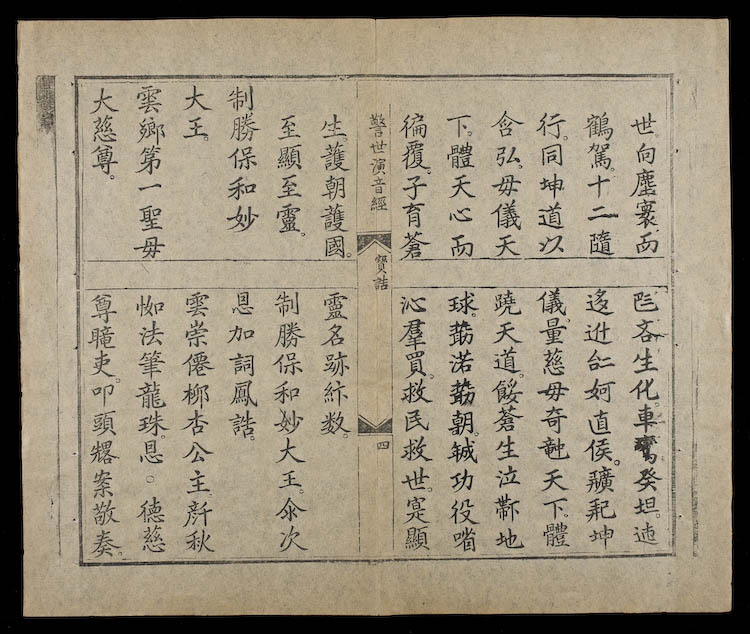 世。向塵寰而
鶴駕。十二隨
行。同坤道以
含弘。毋儀天
下。體天心而
徧覆。子育蒼
生護朝護國。
至顯至靈。
制勝保和妙
大王。
雲鄉第一聖毋
大慈尊。
警世演音經
寳誥
四
吝生化。車癸坦。
直侯。坤
儀量慈毋奇天下。體
蹺天道。餒蒼生泣地
球。渃朝。功役
沁羣買。救民救世。寔顯
靈名跡数。
制勝保和妙大王。次
恩加詞鳳誥。
雲崇僊柳杏公主。秋
法筆龍珠。恩。德慈
尊曨吏。叩頭案敬奏。